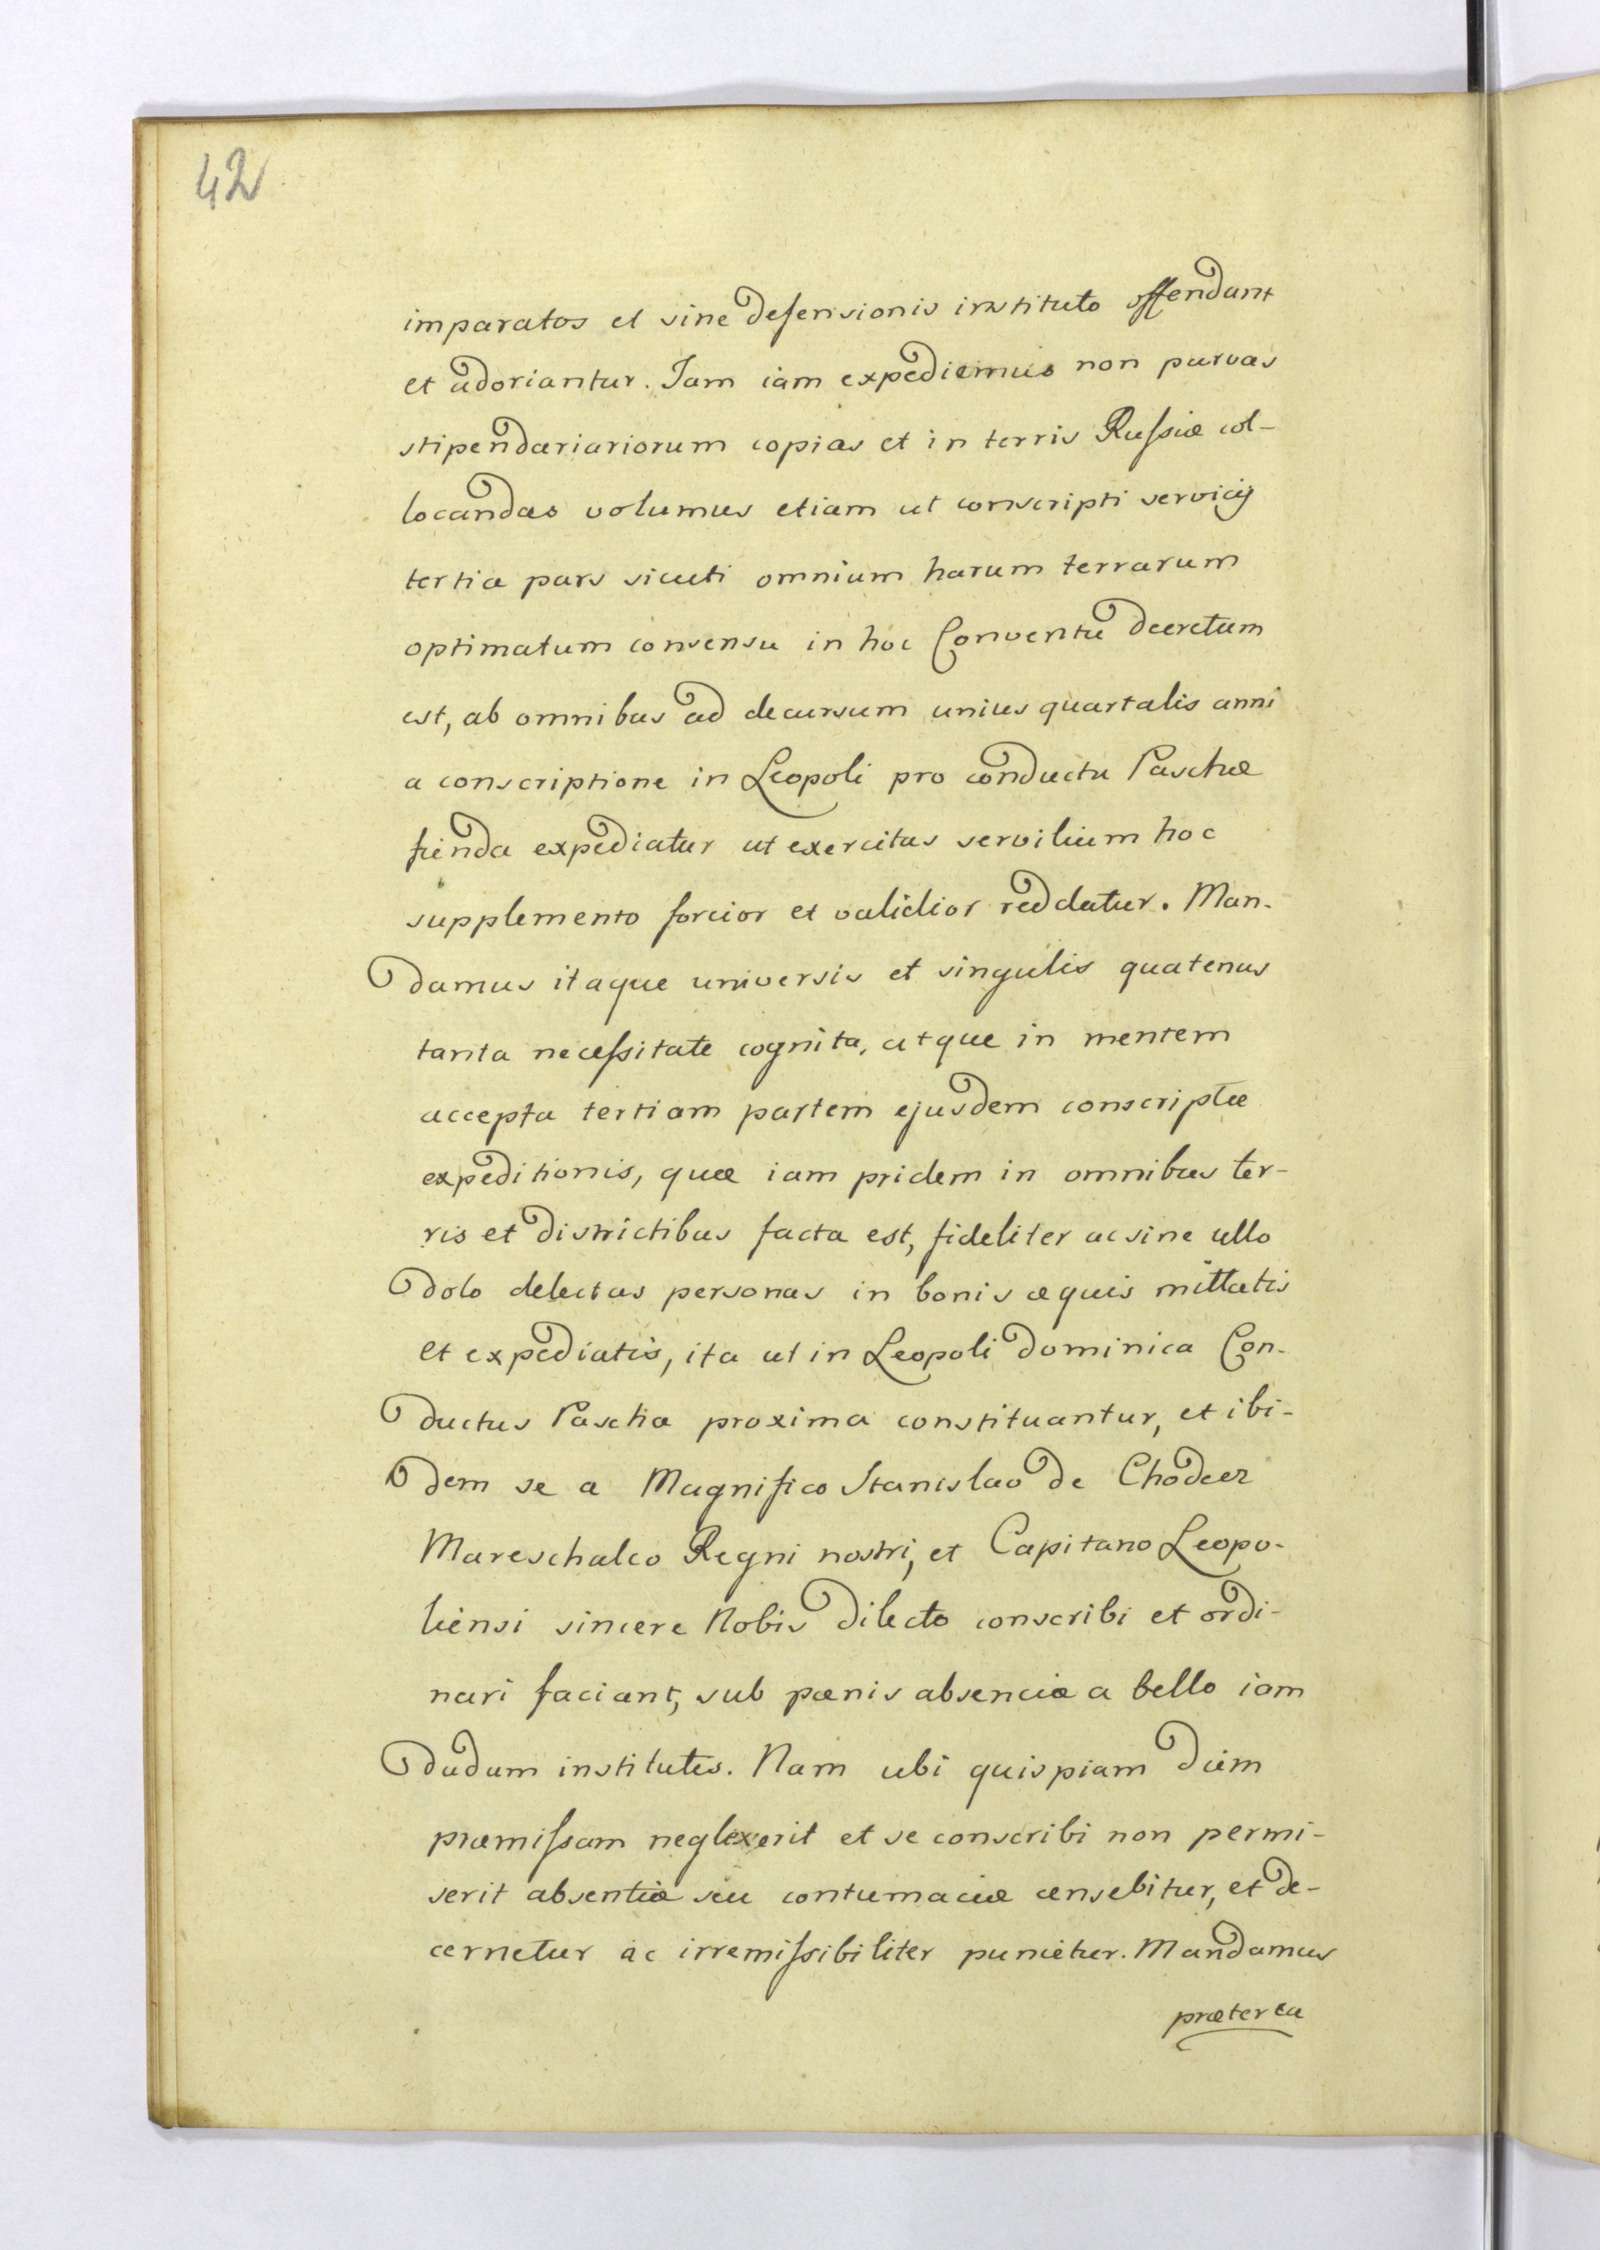 42
imparatos et sine defensionis instituto offendant
et adoriantur. Iam iam expediemus non parvas
stipendariariorum copias et in terris Russiæ col-
locandas volumus etiam ut conscripti servicij
tertia pars sicuti omnium harum terrarum
optimatum consensu in hoc Conventu decretum
est, ab omnibus ad decursum unius quartalis anni
a conscriptione in Leopoli pro conductu Paschæ
fienda expediatur ut exercitus servilium hoc
supplemento forcior et validior reddatur. Man-
damus itaque universis et singulis quatenus
tanta necessitate cognita, atque in mentem
accepta tertiam partem ejusdem conscriptæ
expeditionis, quæ iam pridem in omnibus ter-
ris et districtibus facta est, fideliter ac sine ullo
dolo delectas personas in bonis æquis mittatis
et expediatis, ita ut in Leopoli dominica Con-
ductus Pascha proxima constituantur, et ibi-
dem se a Magnifico Stanislao de Chodecz
Mareschalco Regni nostri, et Capitano Leopo-
liensi sincere Nobis dilecto conscribi et ordi-
nari faciant, sub pœnis absenciæ a bello iam
dudum institutis. Nam ubi quispiam diem
præmissam neglexerit et se conscribi non permi-
serit absentiæ seu contumaciæ censebitur, et de-
cernetur ac irremissibiliter punietur. Mandamus
præterea